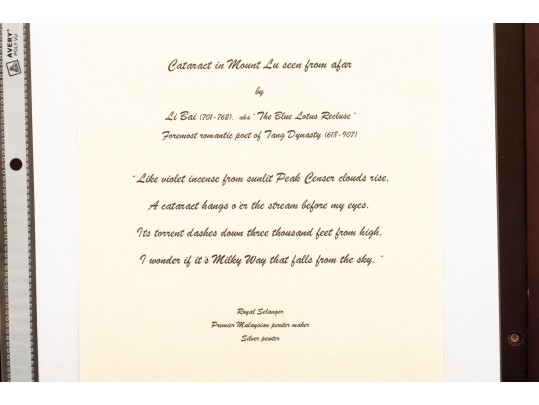 AVERY®
POLYVU
Cataract in Mount Lu seen from afar
by
Li Bai (701-762), aka "The Blue Lotus Recluse"
Foremost romantic poet of Tang Dynasty (618-907)
"Like violet incense from sunlit Peak Censer clouds rise,
A cataract hangs o'er the stream before my eyes.
Its torrent dashes down three thousand feet from high,
I wonder if it's Milky Way that falls from the sky."
Royal Selangor
Premier Malaysian pewter maker
Silver pewter